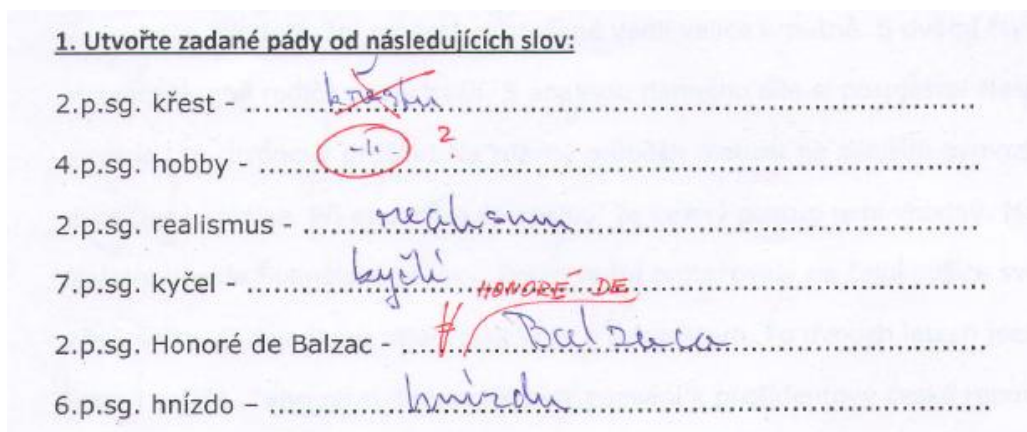 1. Utvořte zadané pády od následujících slov:
2.p.sg. křest - ........................
4.p.sg. hobby - ........................ -II- 2
2.p.sg. realismus - ........................ realismu
7.p.sg. kyčel - ........................ kyčlí
HONORE DE
2.p.sg. Honoré de Balzac - ........................ Balzaca
6.p.sg. hnízdo - ........................ hnízdu